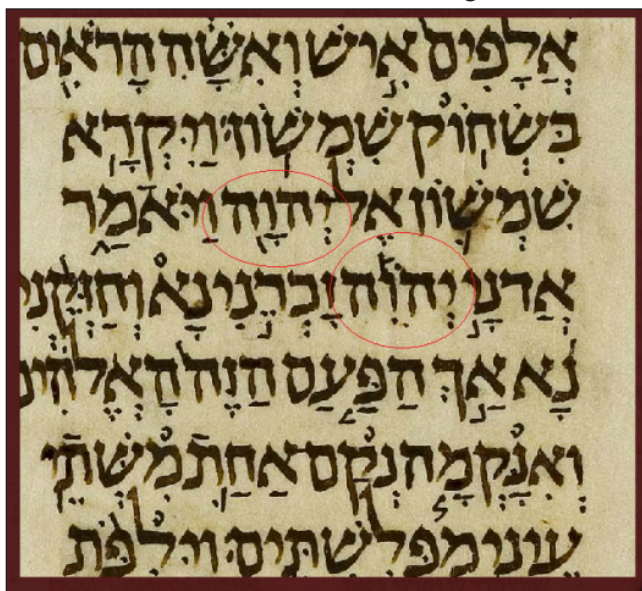 אֲלָפִים אִישׁ וְאִשָּׁה הָרֹאִים
בִּשְׂחוֹק שִׁמְשׁוֹן׃ וַיִּקְרָא
שִׁמְשׁוֹן אֶל יְהוָה וַיֹּאמַר
אֲדֹנָי יְהֹוִה זָכְרֵנִי נָא וְחַזְּקֵנִי
נָא אַךְ הַפַּעַם הַזֶּה הָאֱלֹהִים
וְאִנָּקְמָה נְקַם אַחַת מִשְּׁתֵי
עֵינַי מִפְּלִשְׁתִּים׃ וַיִּלְפֹּת